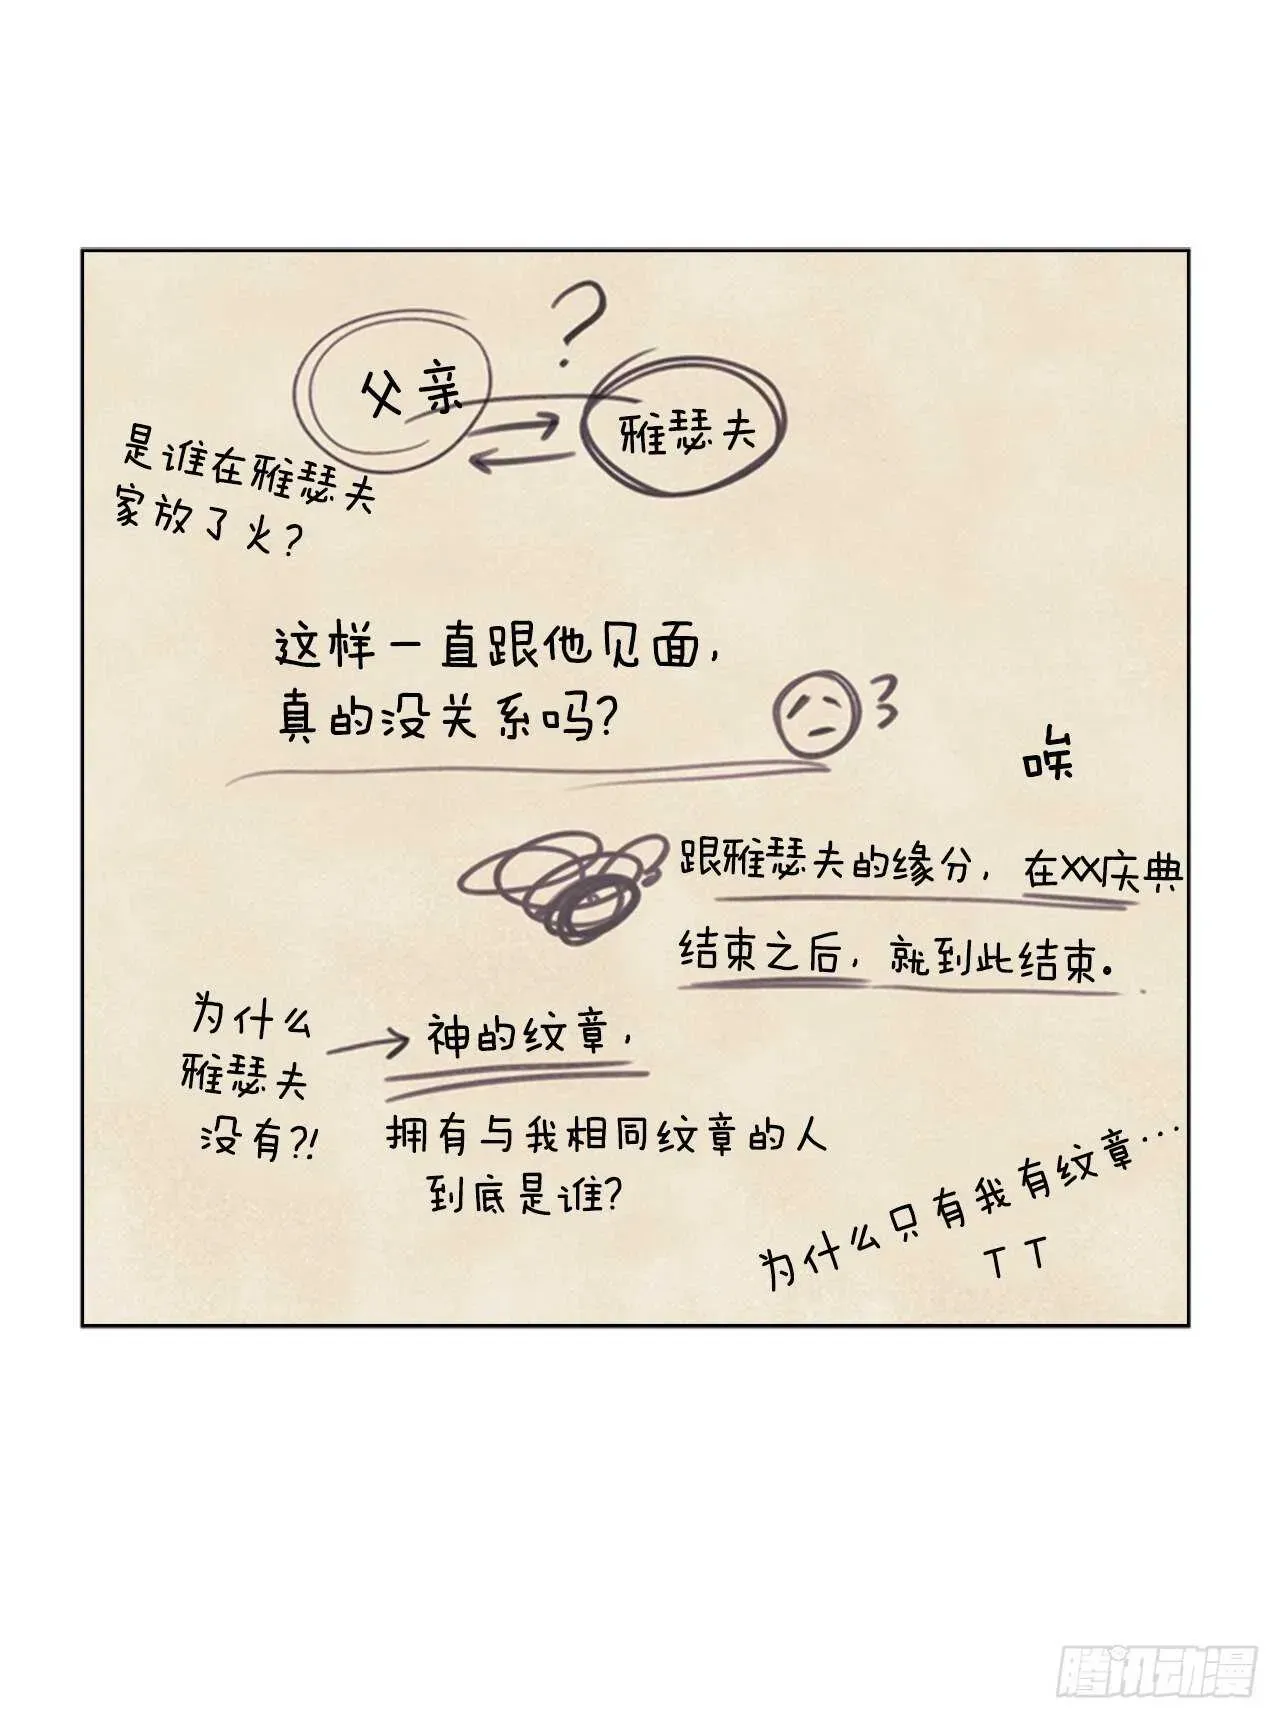 ?
父亲
雅瑟夫
是谁在雅瑟夫
家放了火?
这样一直跟他见面,
真的没关系吗?
唉
跟雅瑟夫的缘分, 在XX庆典
结束之后, 就到此结束。
为什么
雅瑟夫
没有?!
神的纹章,
拥有与我相同纹章的人
到底是谁?
为什么只有我有纹章…
TT
腾讯动漫